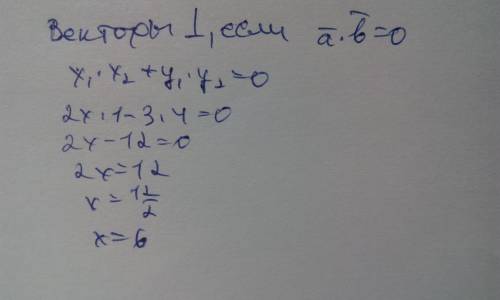 Векторы ⊥, если a̅·b̅=0
x₁·x₂+y₁·y₂=0
2x·1-3·4=0
2x-12=0
2x=12
x=12/2
x=6